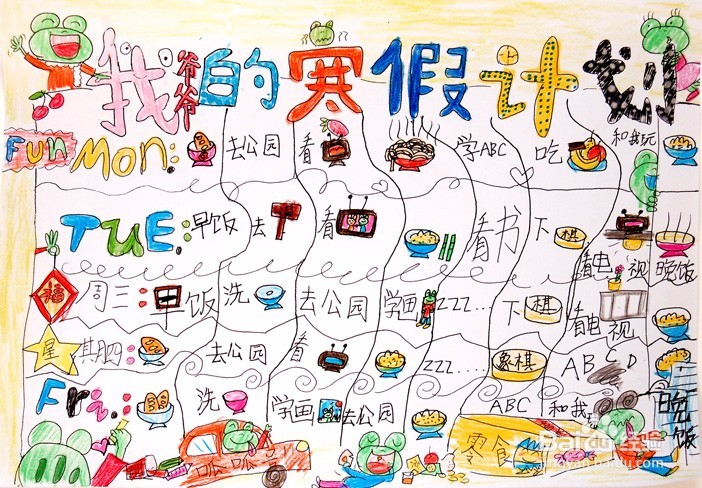 我爷爷的寒假计划
FUN MON: 去公园 看 学ABC 吃 和我玩
TUE: 早饭 去 看 看书 下棋 看电视 晚饭
福 周三: 早饭 洗 去公园 学画 ZZZ... 下棋 看电视
星期四: 去公园 看 ZZZ... 象棋 ABCD
Fri.: 洗 学画 去公园 ABC 和我 晚饭
呱呱 零食
Baidu经验
jingyan.baidu.com